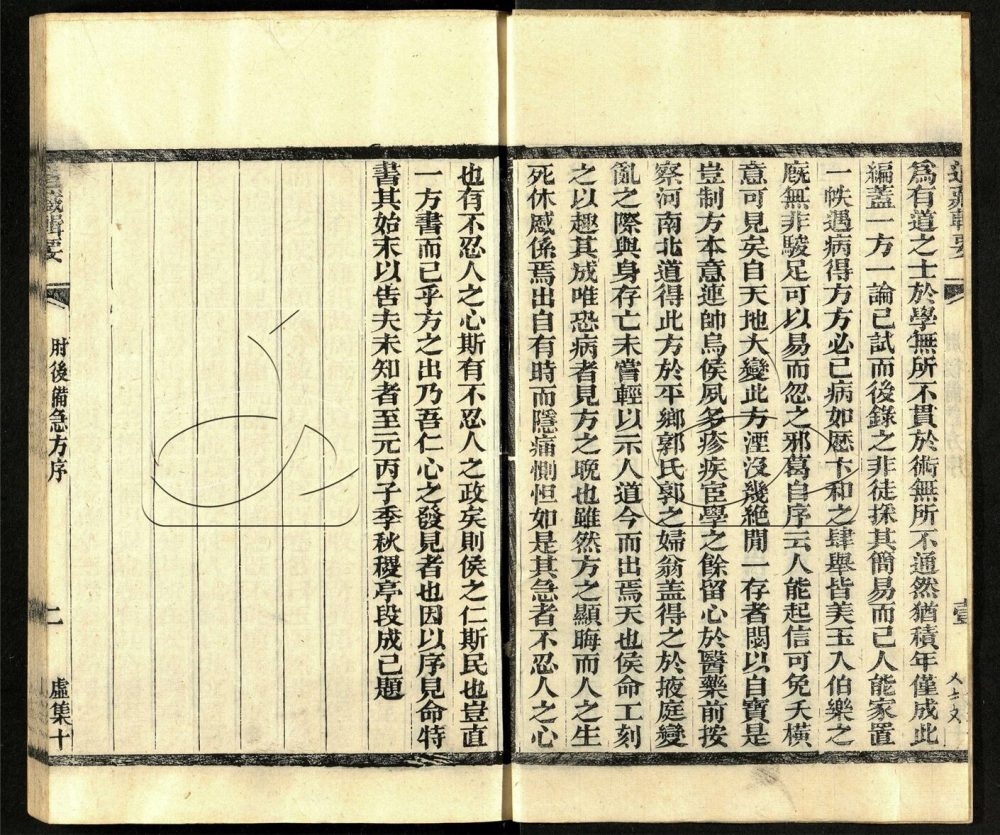 道藏輯要
為有道之士於學無所不貫於術無所不通然猶積年僅成此
編蓋一方一論已試而後錄之非徒採其簡易而已人能家置
一帙遇病得方方必已病如厯卞和之肆舉皆美玉入伯樂之
廐無非駿足可以易而忽之邪葛自序云人能起信可免夭橫
意可見矣自天地大變此方湮沒幾絕間一存者閟以自寶是
豈制方本意連帥烏侯夙多疹疾宦學之餘留心於醫藥前按
察河南北道得此方於平鄉郭氏郭之婦翁蓋得之於掖庭變
亂之際與身存亡未嘗輕以示人道今而出焉天也侯命工刻
之以趣其成唯恐病者見方之晚也雖然方之顯晦而人之生
死休慼係焉出自有時而隱痛惻怛如是其急者不忍人之心
也有不忍人之心斯有不忍人之政矣則侯之仁斯民也豈直
一方書而已乎方之出乃吾仁心之發見者也因以序見命特
書其始末以告夫未知者至元丙子季秋稷亭段成已題
道藏輯要
肘後備急方序
二
虛集十